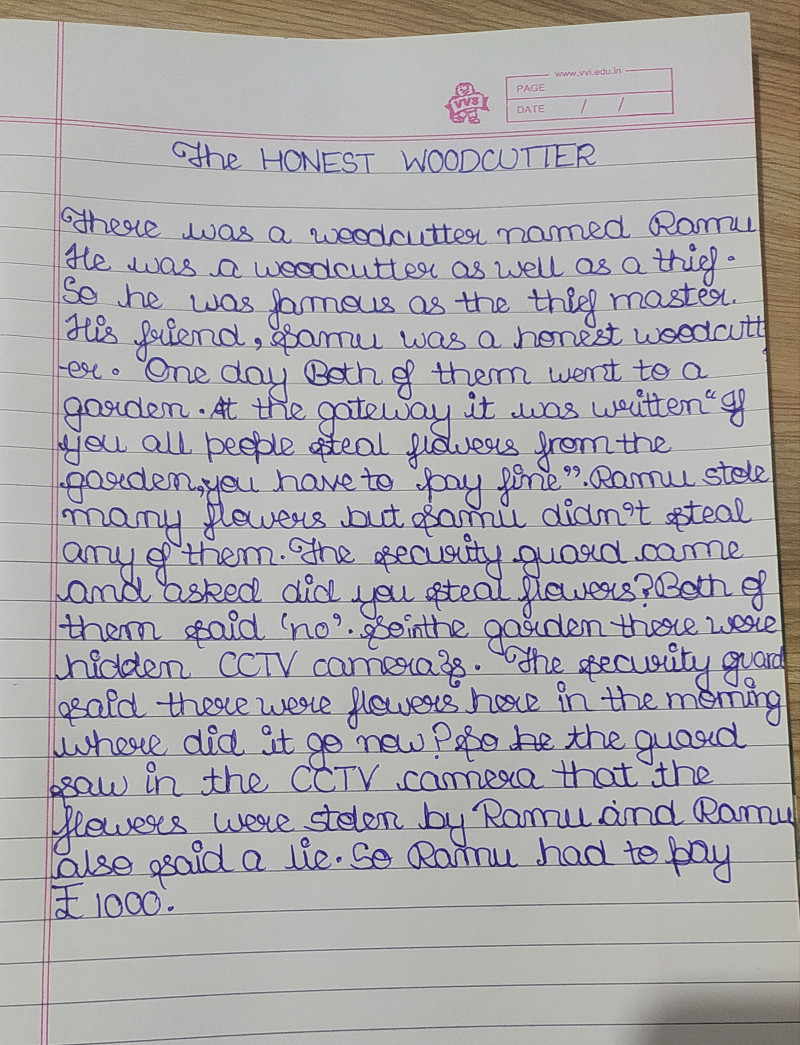 www.vvi.edu.in
VVS
PAGE
DATE / /
The HONEST WOODCUTTER
There was a woodcutter named Ramu
He was a woodcutter as well as a thief.
So he was famous as the thief master.
His friend, Samu was a honest woodcutt
-er. One day Both of them went to a
garden. At the gateway it was written "If
you all people steal flowers from the
garden, you have to pay fine". Ramu stole
many flowers but Samu didn't steal
any of them. The security guard came
and asked did you steal flowers? Both of
them said 'no'. So in the garden there were
hidden CCTV cameras. The security guard
said there were flowers here in the morning
where did it go now? So the guard
saw in the CCTV camera that the
flowers were stolen by Ramu and Ramu
also said a lie. So Ramu had to pay
₹ 1000.